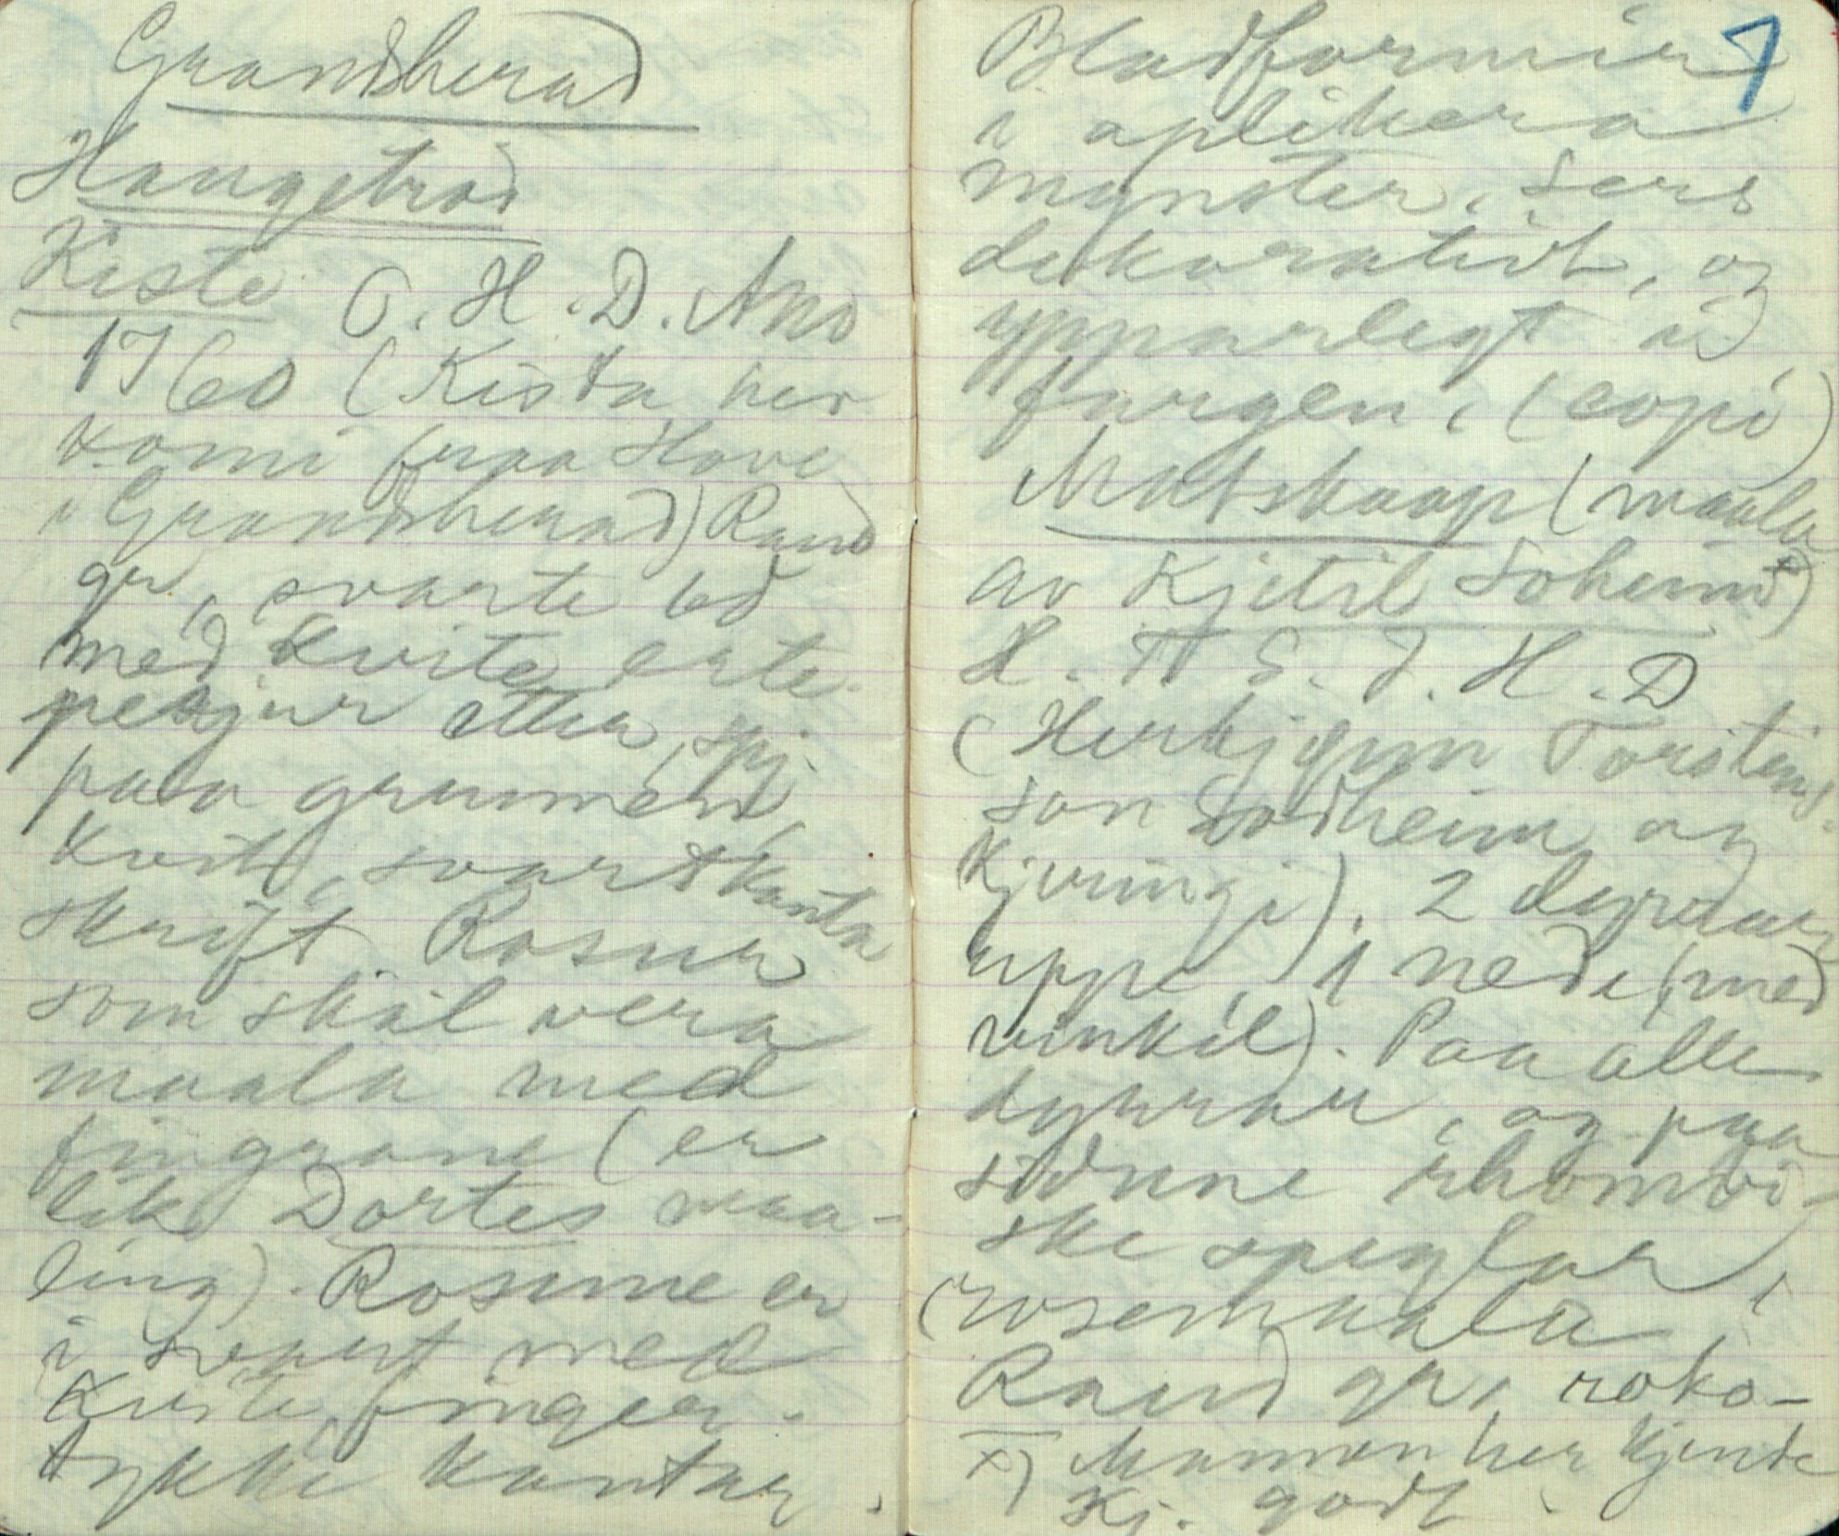 Grandsherad
Haugetrod
Kiste O. H. D. Ano
1760 (Kista her
komi fraa Hove
i Grandsherad) Raud
gr, svarte bd
med kvite erte-
pengur etter, spj.
paa grunnen,
kvit, svartkanta
skrift. Rosur
som skal vera
maala med
fingrane (er
lik Dortes maa-
ling). Rosune er
i svart med
kvite, finger-
tykke kantar.
7
Bladformir
i aplikera
mynster. Sers
dekorativt, og
ypparlegt i
fargen. (copi)
Matskaap (maala
av Kjetil Soheim x)
H. T. S. S. H. D
(Herbjørn Torsteins-
son Sodheim og
Kjeringi). 2 dyrar
uppe, 1 nede (med
vinkil). Paa alle
dyrar, og paa
sidune rhombi-
ske speglar,
(rosemaala)
Raud gr, roko-
x) Mannen her kjende
Kj. godt.